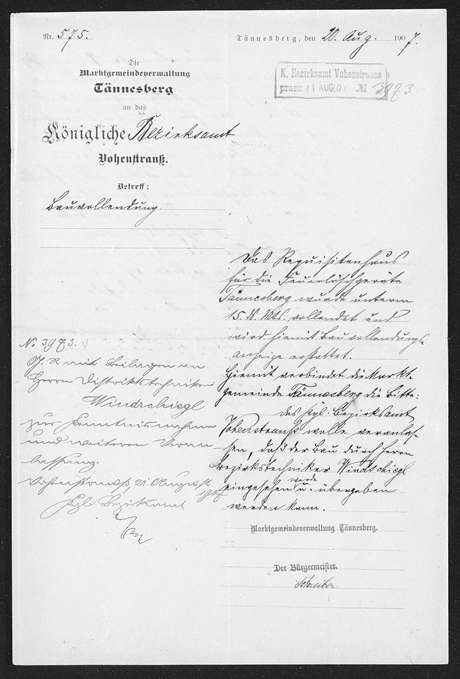 Nr. 575.
Tännesberg, den 20. Aug. 1907.
Die
Marktgemeindeverwaltung
Tännesberg
an das
Königliche Bezirksamt
Vohenstrauß.
K. Bezirksamt Vohenstrauss
praes. 21 AUG. 07 № 3973
Betreff:
Bauvollendung.
Das Requisitenhaus
für die Feuerlöschgeräte
Tännesberg wurde unterm
15. d. Mts. vollendet und
wird hiemit Bauvollendungs-
anzeige erstattet.
Hiemit verbindet die Markt-
gemeinde Tännesberg die Bitte:
das kgl. Bezirksamt
Vohenstrauß wolle veranlas-
sen, daß der Bau durch Herrn
Bezirkstechniker Windschiegl
eingesehen wurde u. übergeben
werden kann.
Marktgemeindeverwaltung Tännesberg.
Der Bürgermeister.
No 3973.
mit Beilagen an
Herrn Distriktstechniker
Windschiegl
zur Kenntnisnahme
und weiteren Veran-
lassung.
Vohenstrauß 21. August 1907
Kgl. Bezirksamt